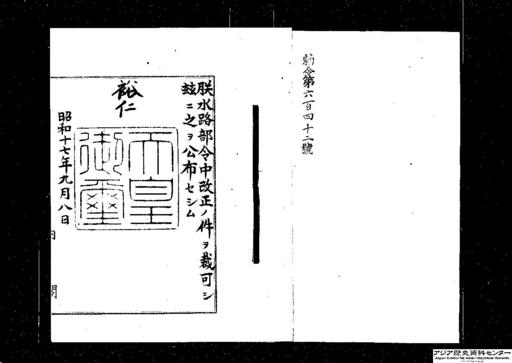 勅令第六百四十二號
朕水路部令中改正ノ件ヲ裁可シ
玆ニ之ヲ公布セシム
裕仁
天皇御璽
昭和十七年九月八日
内閣
アジア歴史資料センター
Japan Center for Asian Historical Records